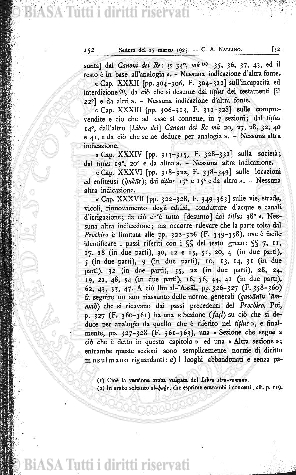 Tutti i diritti riservati
152 Seduta del 15 marzo 1923 – C. A. Nallino [32
sunta] dai Canoni dei Re: §§ 34°, 35, 36, 37, 43, ed il
resto è in base all'analogia ». – Nessuna indicazione d'altra fonte.
« Cap. XXXII [pp. 304-306, F. 304-312] sull'incapacità ed
interdizione, da ciò che si desume dai titlus dei testamenti [il
22°] e da altri ». – Nessuna indicazione d'altra fonte.
« Cap. XXXIII [pp. 306-323, F. 312-328] sulle compra-
vendite e ciò che ad esse si connette, in 7 sezioni; dal titlus
14°, dall'altro [Libro dei] Canoni dei Re 20, 27, 28, 32, 40
e 41, e da ciò che se ne deduce per analogia ». – Nessuna altra
indicazione.
« Cap. XXXIV [pp. 313-315, F. 328-332] sulla società;
dal titlus 19°, 20° e da altro ». – Nessuna altra indicazione.
« Cap. XXXVI [pp. 318-322, F. 338-349] sulle locazioni
ed enfiteusi; dai titlus 17° e 15° e da altro ». – Nessuna
altra indicazione.
« Cap. XXXVII [pp. 322-328, F. 349-363] sulle vie, strade,
vicoli, rinnovamento degli edifici, condutture d'acqua e canali
d'irrigazione; da ciò ch'è tutto [desunto] dal titlus 38° ». Nes-
suna altra indicazione; ma occorre rilevare che la parte tolta dal
Prochiro è limitata alle pp. 322-326 (F. 349-358), ove è facile
identificare i passi riferiti con i §§ del testo greco: §§ 7, 11,
17, 18 (in due parti), 30, 12 e 15, 51, 20, 4 (in due parti),
5 (in due parti), 9 (in due parti), 10, 13, 14, 31 (in due
parti), 32 (in due parti), 55, 22 (in due parti), 28, 24,
62, 43, 33, 47. A ciò Ibn al-'Assāl, pp. 326-327 (F. 358-360)
fa seguire un suo riassunto delle norme generali
che si ricavano dai passi precedenti del Prochiro. Poi,
p. 327 (F. 360-361) ha una « Sezione su ciò che si de-
duce per analogia da quello che è riferito nel titlus », e final-
mente, pp. 327-328 (F. 361-363), una « Sezione che segue a
ciò che è detto in questo capitolo » ed una « Altra sezione »;
entrambe queste sezioni sono semplicemente norme di diritto
musulmano riguardanti: a) i luoghi abbandonati e senza pa-
(1) Cioè la versione araba vulgata del Libro siro-romano.
(2) In arabo soltanto al-ḥaǧr, che esprime entrambi i concetti, cfr. p. 119.
Tutti i diritti riservati